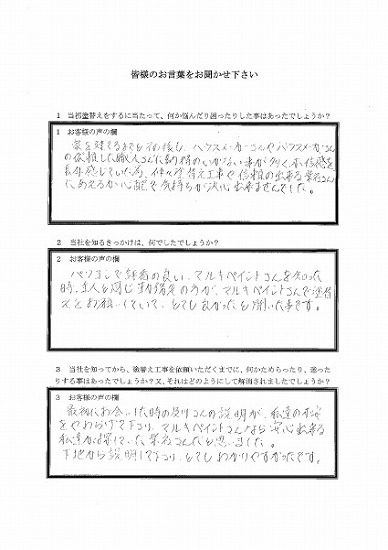 皆様のお言葉をお聞かせ下さい
1 当初塗替えをするに当たって、何か悩んだり困ったりした事はあったでしょうか?
1 お客様の声の欄
家を建てるまでもその後も、ハウスメーカーさんやハウスメーカーさん
の依頼した職人さんに納得のいかない事が多く、不信感を
長年感じていた為、中々塗替え工事や信頼の出来る業者さん
にあえるか心配で気持ちが決心出来ませんでした。
2 当社を知るきっかけは、何でしたでしょうか?
2 お客様の声の欄
パソコンで評判の良い、マルキペイントさんを知った
時、主人と同じ勤務先の方が、マルキペイントさんで塗替
えをお願いしていて、とても良かったと聞いた事です。
3 当社を知ってから、塗替え工事を依頼いただくまでに、何かためらったり、迷った
りする事はあったでしょうか?又、それはどのようにして解消されましたでしょうか?
3 お客様の声の欄
最初にお会いした時の さんの説明が、私達の不安
をやわらげて下さり、マルキペイントさんなら安心出来る
私達が探していた業者さんだと思いました。
下地から説明して下さり、とてもわかりやすかったです。